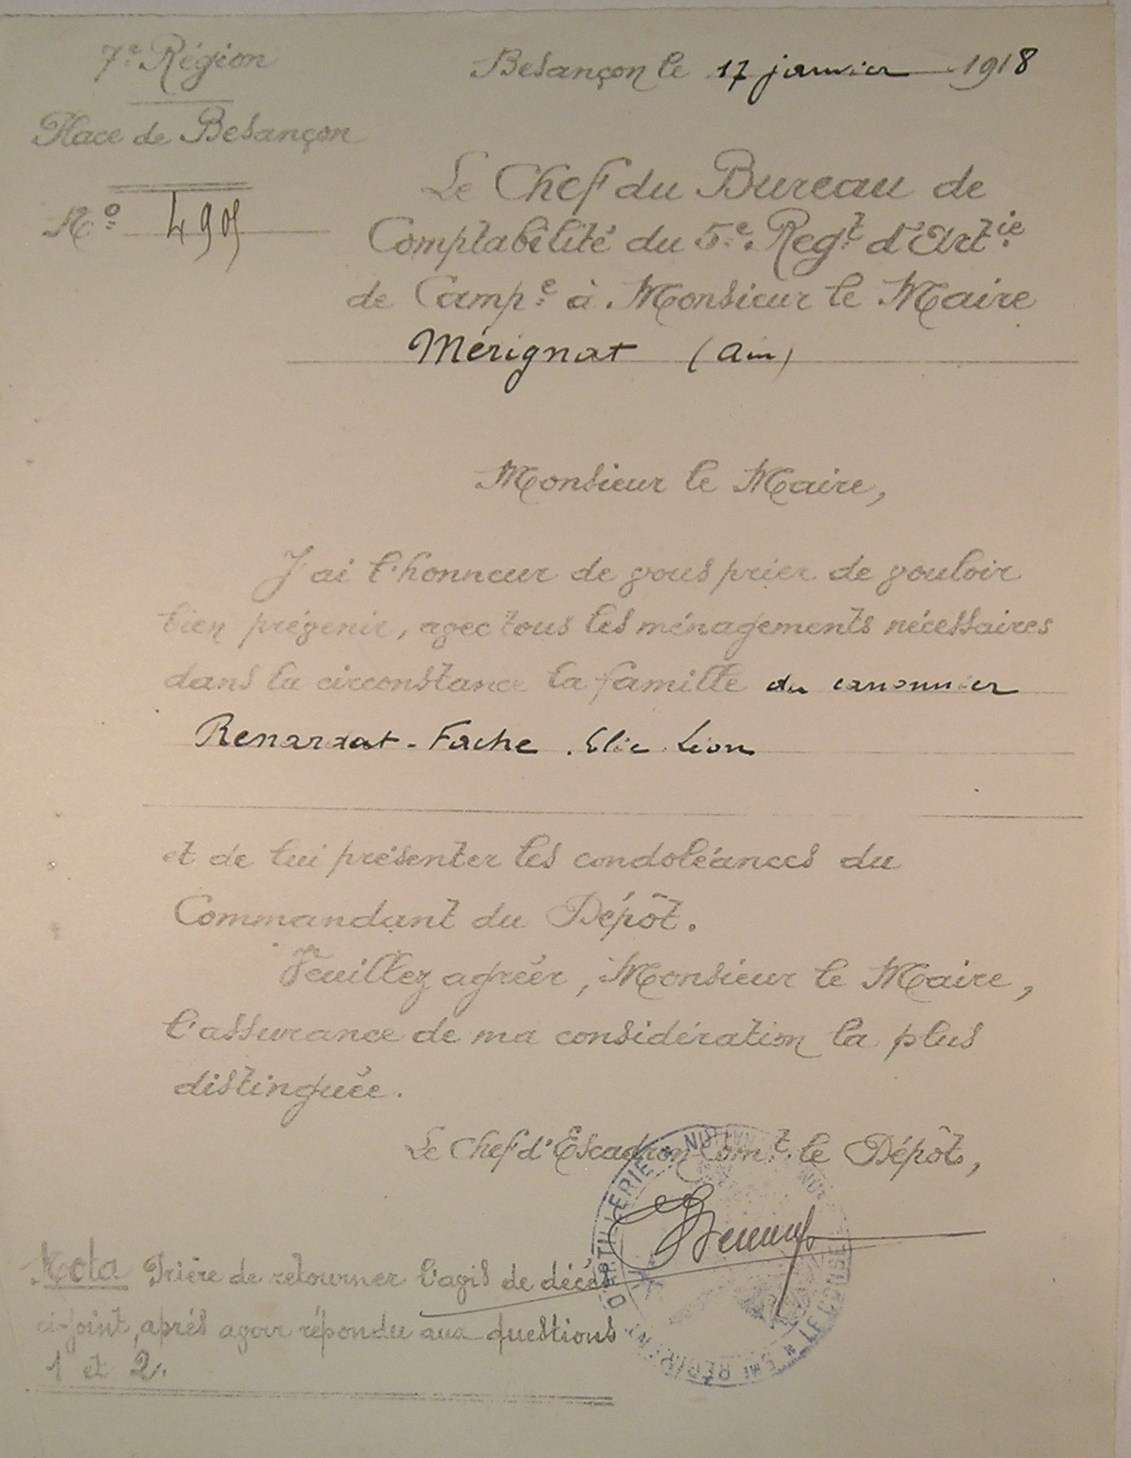 7e Région
Place de Besançon
No 4909
Besançon le 17 janvier 1918
Le Chef du Bureau de
Comptabilité du 5e Regt d'Artie
de Campe à Monsieur le Maire
Mérignat (Ain)
Monsieur le Maire,
J'ai l'honneur de vous prier de vouloir
bien prévenir, avec tous les ménagements nécessaires
dans la circonstance la famille du canonnier
Renardat-Fache Elie Léon
et de lui présenter les condoléances du
Commandant du Dépôt.
Veuillez agréer, Monsieur le Maire,
l'assurance de ma considération la plus
distinguée.
Le Chef d'Escadron Comt le Dépôt,
Nota Prière de retourner l'avis de décès
ci-joint, après avoir répondu aux questions
1 et 2.